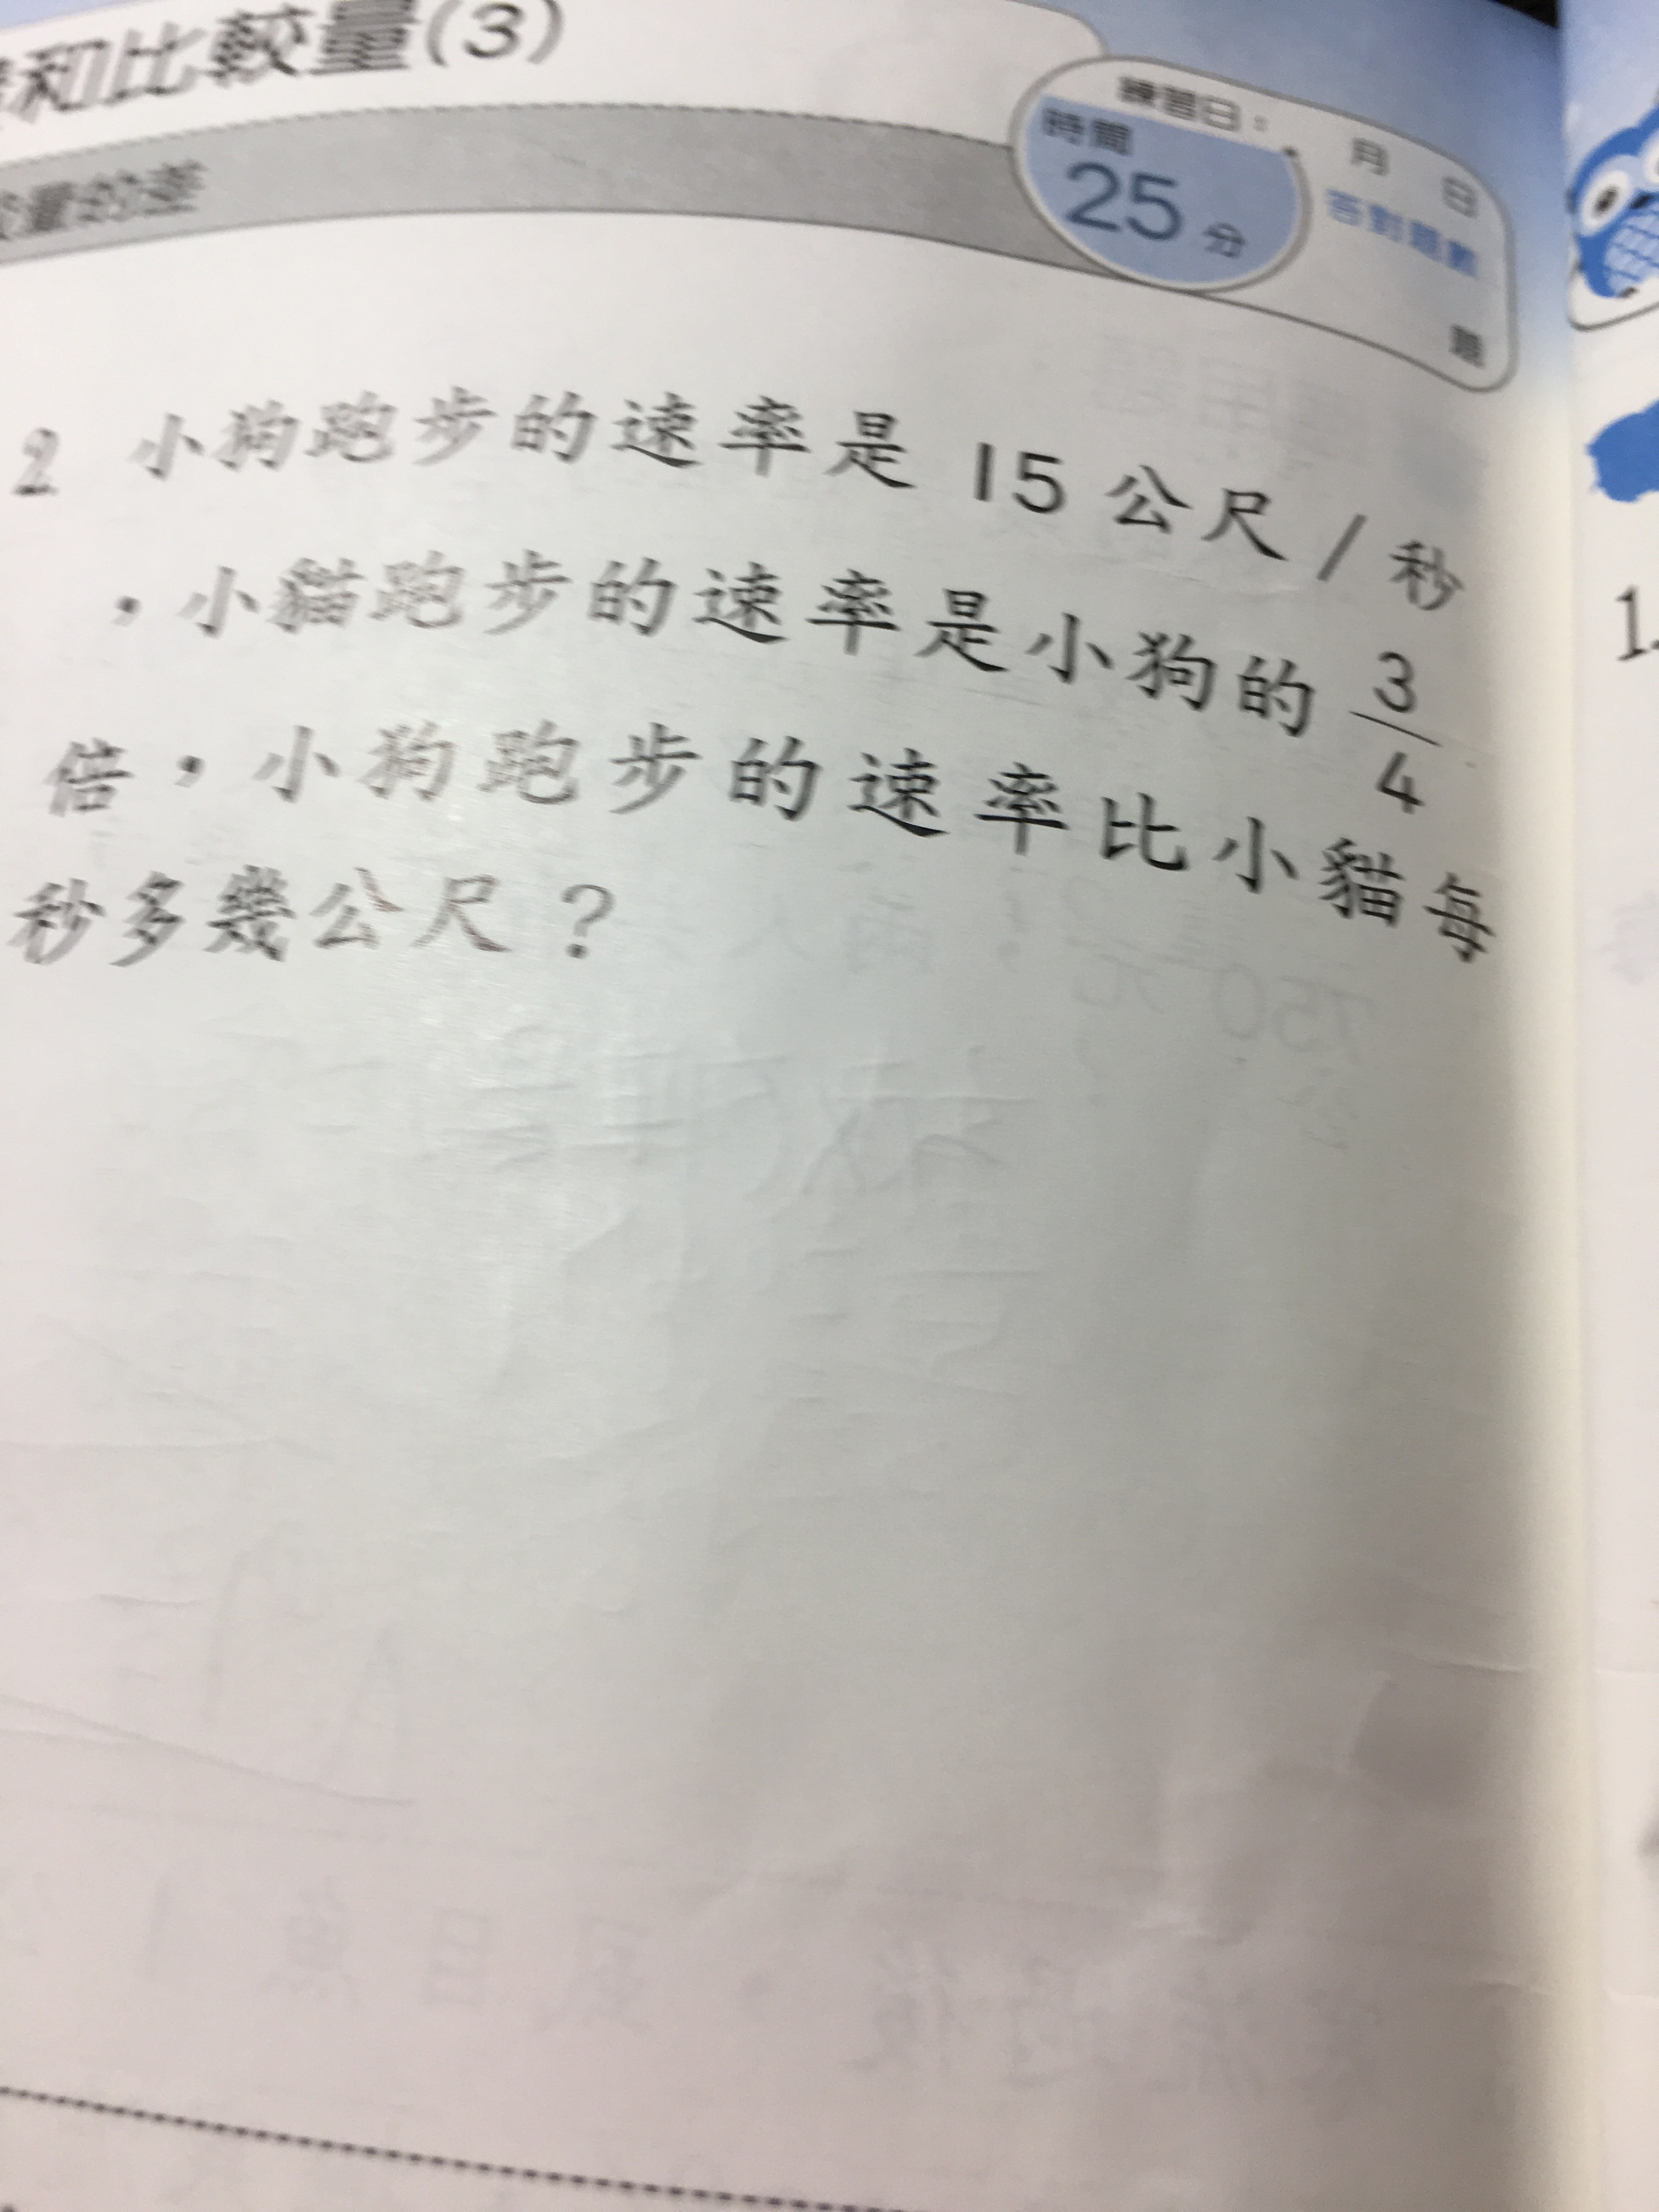 和比較量(3)
量的差
練習日： 月 日
時間
25 分
答對題數
題
2. 小狗跑步的速率是 15 公尺 / 秒
，小貓跑步的速率是小狗的 3/4
倍，小狗跑步的速率比小貓每
秒多幾公尺？
1.